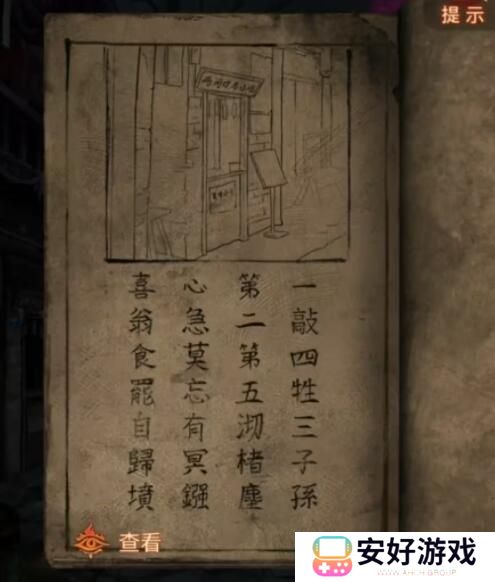 提示
一敲四牲三子孫
第二第五沏楮塵
心急莫忘有冥鏹
喜翁食罷自歸墳
查看
安好游戏